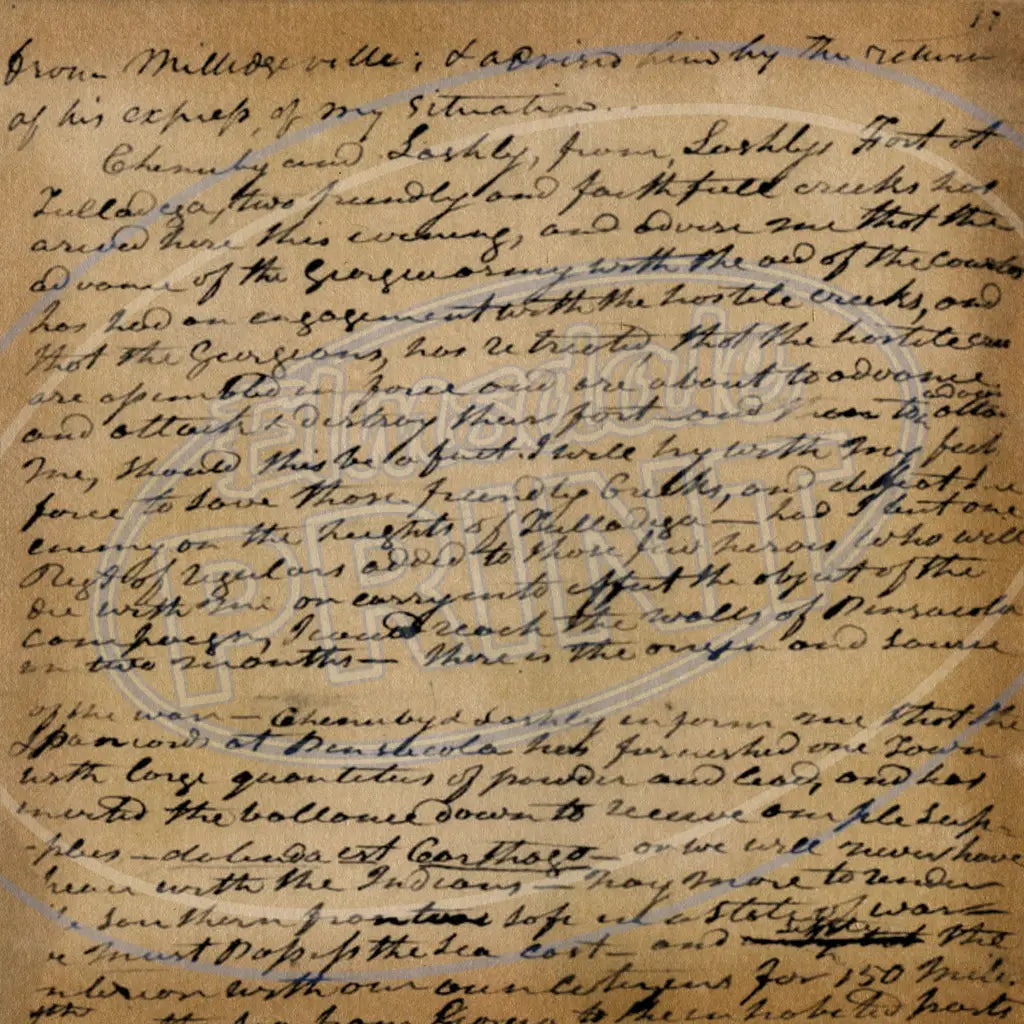 17
from Milledgeville; & advised him by the return
of his express, of my situation.
Chenuby and Lashly, from Lashlys Fort at
Tulladega, two friendly and faithfull creeks has
arived here this evening, and advise me that the
advance of the Georgia army with the aid of the cowetas
has had an engagement with the hostile creeks, and
that the Georgians, has retreated, that the hostile
are assembled in force and are about to advance
and attack & destroy their fort and then to
advance
me, should this be a fact. I will try with my
force to save those friendly Creeks, and defeat the
enemy on the heights of Tulladega — had I but one
Regt of regulars added to those few heroes who will
die with me on carrying into effect the object of the
campaign, I could reach the walls of Pensacola
in two months — there is the origin and source
of the war — Chenuby & Lashly inform me that the
Spaniards at Pensacola has furnished one Town
with large quantities of powder and lead, and has
invited the ballance down to receive ample sup-
-plies — delenda est Carthago — or we will never have
peace with the Indians — nay more to render
the southern frontier safe in a state of war —
we must Possess the sea cost — and the
with our own citizens for 150 mile
from Georgia to the inhabited parts
Elmsdale
PRINT